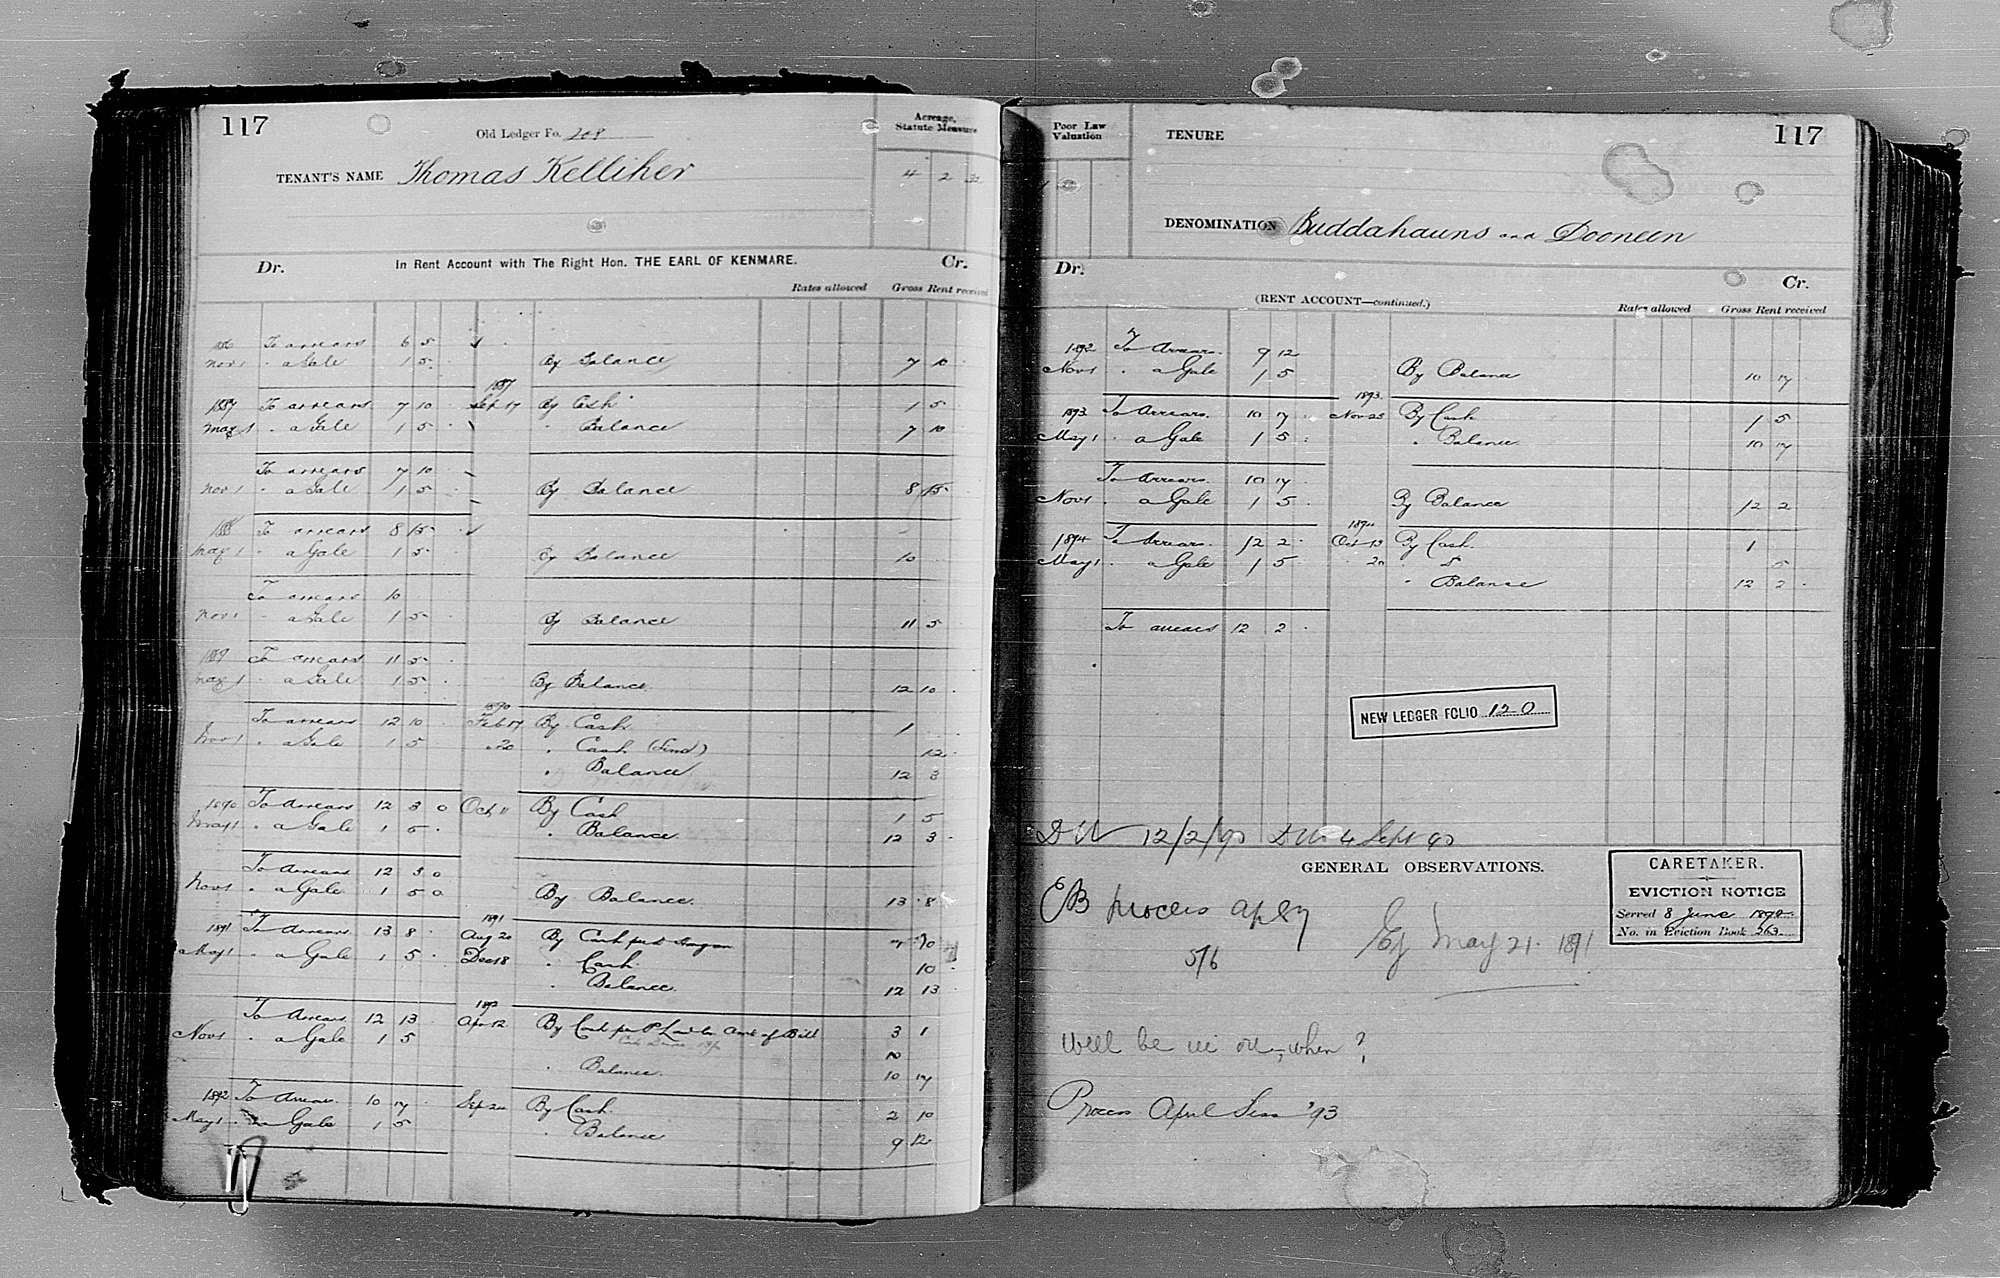 117
Old Ledger Fo. 208
Acreage, Statute Measure
TENANT'S NAME Thomas Kelliher
4 2 32
Dr. In Rent Account with The Right Hon. THE EARL OF KENMARE. Cr.
Rates allowed Gross Rent received
To arrears 6 5
Nov 1 " a Gale 1 5 By Balance 7 10
1887
1887 To arrears 7 10 Sep 17 By Cash 1 5
May 1 " a Gale 1 5 " Balance 7 10
To arrears 7 10
Nov 1 " a Gale 1 5 By Balance 8 15
1888 To arrears 8 15
May 1 " a Gale 1 5 By Balance 10
To arrears 10
Nov 1 " a Gale 1 5 By Balance 11 5
1889 To arrears 11 5
May 1 " a Gale 1 5 By Balance 12 10
1890
To arrears 12 10 Feb 17 By Cash 1
Nov 1 " a Gale 1 5 " 20 " Cash 12
" Balance 12 3
1890 To Arrears 12 3 0 Oct 11 By Cash 1 5
May 1 " a Gale 1 5 " Balance 12 3
To Arrears 12 3 0
Nov 1 " a Gale 1 5 0 By Balance 13 8
1891
1891 To Arrears 13 8 Aug 20 By Cash
May 1 " a Gale 1 5 Dec 18 " Cash 10
" Balance 12 13
1892
To Arrears 12 13 Apr 12 By Cash per Bill 3 1
Nov 1 " a Gale 1 5
" Balance 10 17
1892 To Arrears 10 17 Sep 24 By Cash 2 10
May 1 " a Gale 1 5 " Balance 9 12
Poor Law Valuation
TENURE
117
DENOMINATION Buddahauns and Dooneen
Dr. Cr.
(RENT ACCOUNT—continued.) Rates allowed Gross Rent received
1892 To Arrears 9 12
Nov 1 " a Gale 1 5 By Balance 10 17
1893
1893 To Arrears 10 17 Nov 25 By Cash 1 5
May 1 " a Gale 1 5 " Balance 10 17
To Arrears 10 17
Nov 1 " a Gale 1 5 By Balance 12 2
1894
1894 To Arrears 12 2 Oct 13 By Cash 1
May 1 " a Gale 1 5 " 20 " 5
" Balance 12 2
To arrears 12 2
NEW LEDGER FOLIO 120
12/2/90 4 Sept 90
GENERAL OBSERVATIONS.
CARETAKER.
EVICTION NOTICE
Served 8 June 1892
No. in Eviction Book 263
EB process
5/6
Ej May 21 1891
Will be in when?
Process April Sess '93